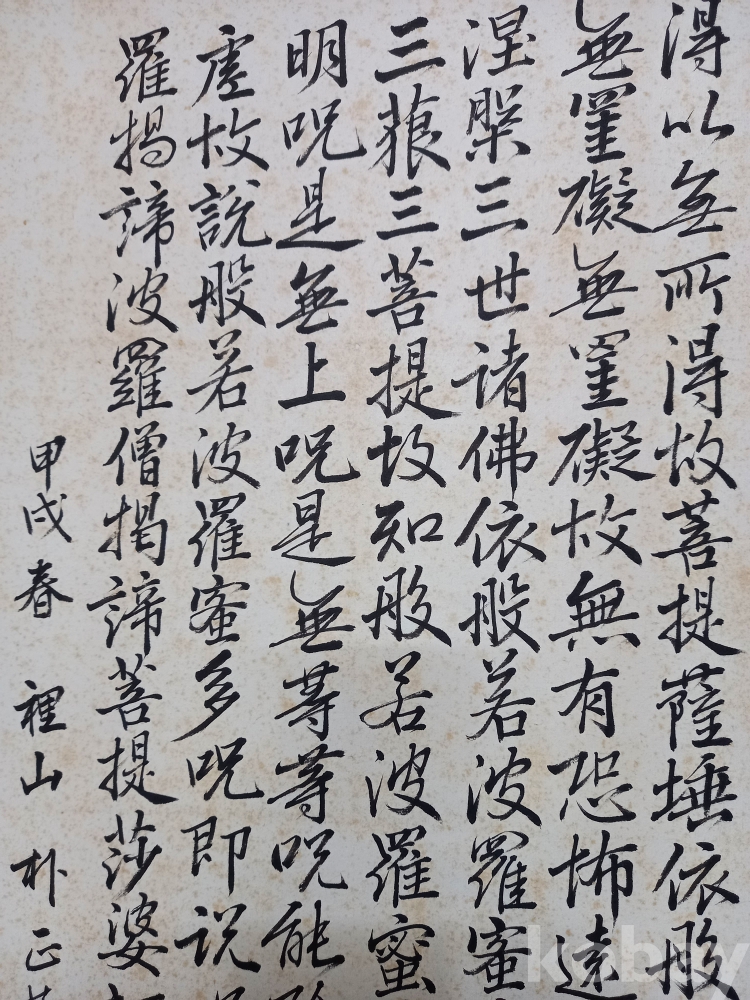 得以無所得故菩提薩埵依般
無罣礙無罣礙故無有恐怖遠
涅槃三世諸佛依般若波羅蜜
三藐三菩提故知般若波羅蜜
明呪是無上呪是無等等呪能
虛故說般若波羅蜜多呪即說
羅揭諦波羅僧揭諦菩提莎婆
甲戌春 裡山 朴正
kobay